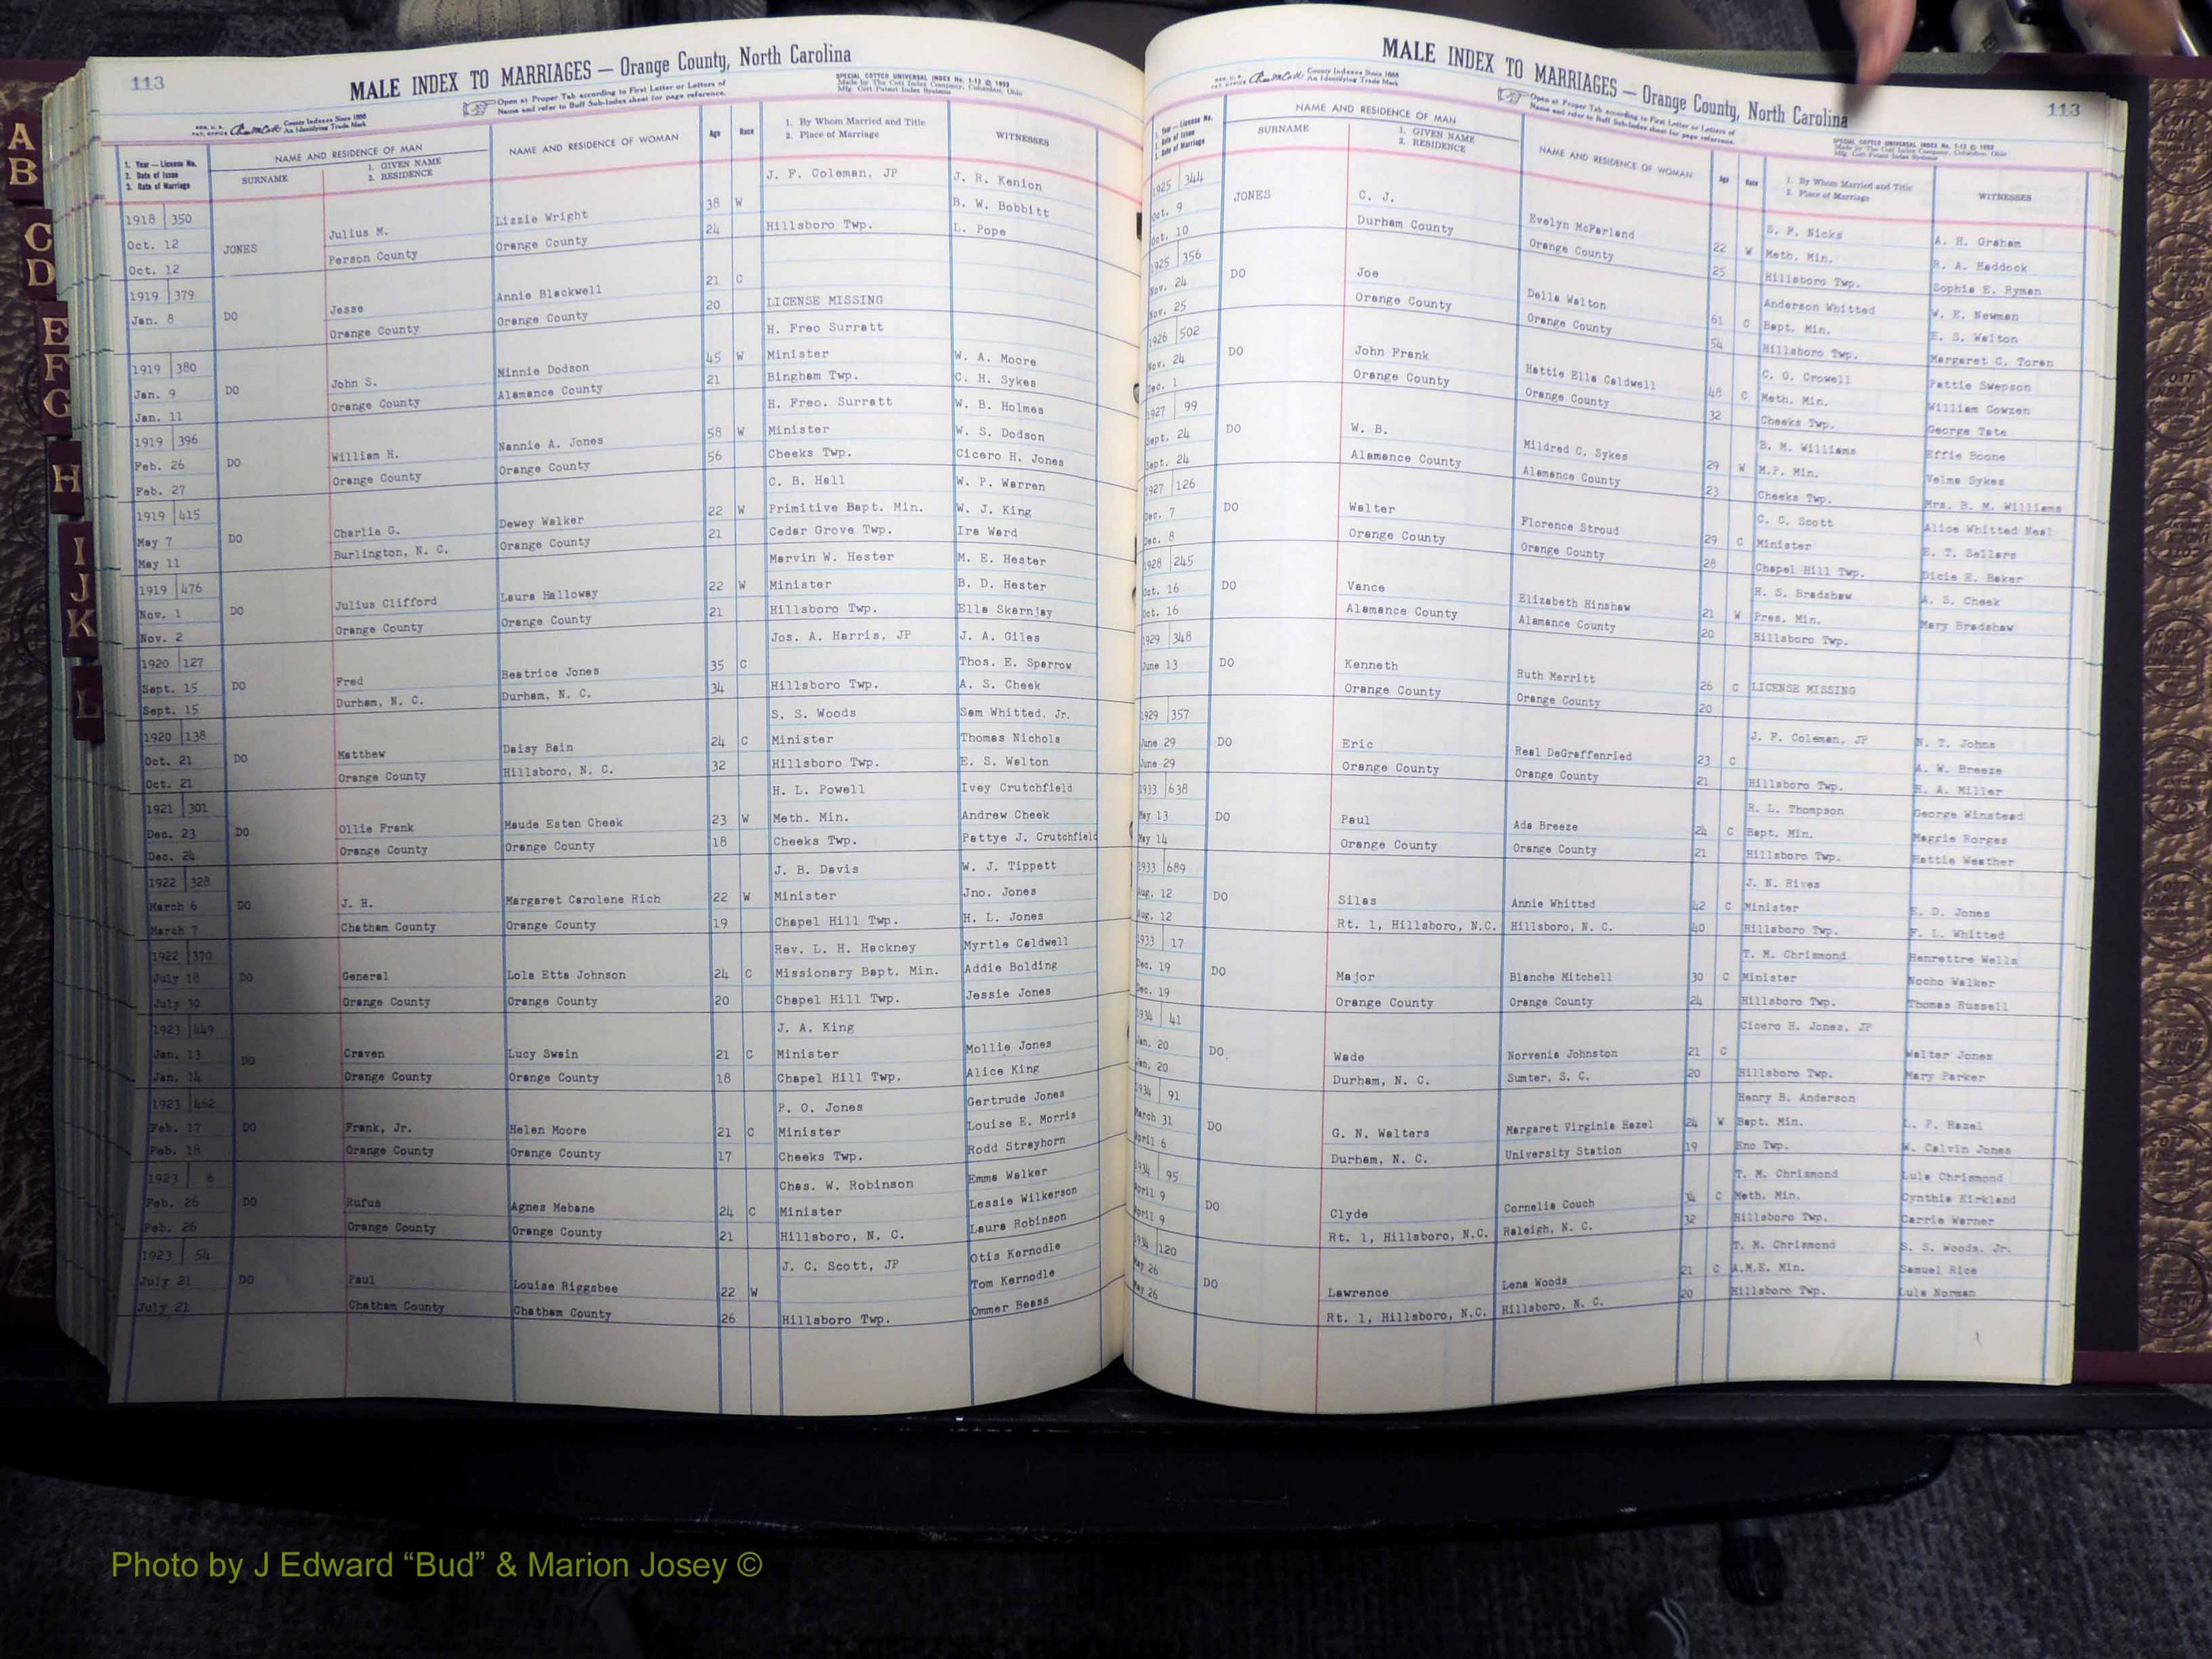 A
B
C
D
E
F
G
H
I
J
K
L
113
MALE INDEX TO MARRIAGES — Orange County, North Carolina
Open at Proper Tab according to First Letter or Letters of
Name and refer to Buff Sub-Index sheet for page reference.
SPECIAL COTTCO UNIVERSAL INDEX No. 1-12 © 1953
Made by The Cott Index Company, Columbus, Ohio
Mfg. Cott Patent Index Systems
County Indexes Since 1888
An Identifying Trade Mark
1. Year — License No.
2. Date of Issue
3. Date of Marriage
NAME AND RESIDENCE OF MAN
SURNAME
1. GIVEN NAME
2. RESIDENCE
NAME AND RESIDENCE OF WOMAN
Age
Race
1. By Whom Married and Title
2. Place of Marriage
WITNESSES
J. F. Coleman, JP J. R. Kenion
1918 350 Lizzie Wright 38 W B. W. Bobbitt
Oct. 12 JONES Julius M. Orange County 24 Hillsboro Twp. L. Pope
Oct. 12 Person County
1919 379 Annie Blackwell 21 C
Jan. 8 DO Jesse Orange County 20 LICENSE MISSING
Orange County
H. Freo Surratt
1919 380 Minnie Dodson 45 W Minister W. A. Moore
Jan. 9 DO John S. Alamance County 21 Bingham Twp. C. H. Sykes
Jan. 11 Orange County
H. Freo. Surratt W. B. Holmes
1919 396 Nannie A. Jones 58 W Minister W. S. Dodson
Feb. 26 DO William H. Orange County 56 Cheeks Twp. Cicero H. Jones
Feb. 27 Orange County
C. B. Hall W. P. Warren
1919 415 Dewey Walker 22 W Primitive Bapt. Min. W. J. King
May 7 DO Charlie G. Orange County 21 Cedar Grove Twp. Ira Ward
May 11 Burlington, N. C.
Marvin W. Hester M. E. Hester
1919 476 Laura Halloway 22 W Minister B. D. Hester
Nov. 1 DO Julius Clifford Orange County 21 Hillsboro Twp. Ella Skernjay
Nov. 2 Orange County
Jos. A. Harris, JP J. A. Giles
1920 127 Beatrice Jones 35 C Thos. E. Sparrow
Sept. 15 DO Fred Durham, N. C. 34 Hillsboro Twp. A. S. Cheek
Sept. 15 Durham, N. C.
S. S. Woods Sam Whitted, Jr.
1920 138 Daisy Bain 24 C Minister Thomas Nichols
Oct. 21 DO Matthew Hillsboro, N. C. 32 Hillsboro Twp. E. S. Walton
Oct. 21 Orange County
H. L. Powell Ivey Crutchfield
1921 301 Maude Esten Cheek 23 W Meth. Min. Andrew Cheek
Dec. 23 DO Ollie Frank Orange County 18 Cheeks Twp. Pattye J. Crutchfield
Dec. 24 Orange County
J. B. Davis W. J. Tippett
1922 328 Margaret Carolene Rich 22 W Minister Jno. Jones
March 6 DO J. H. Orange County 19 Chapel Hill Twp. H. L. Jones
March 7 Chatham County
Rev. L. H. Hackney Myrtle Caldwell
1922 370 Lola Etta Johnson 24 C Missionary Bapt. Min. Addie Bolding
July 18 DO General Orange County 20 Chapel Hill Twp. Jessie Jones
July 30 Orange County
J. A. King
1923 449 Lucy Swain 21 C Minister Mollie Jones
Jan. 13 DO Craven Orange County 18 Chapel Hill Twp. Alice King
Jan. 14 Orange County
P. O. Jones Gertrude Jones
1923 462 Helen Moore 21 C Minister Louise E. Morris
Feb. 17 DO Frank, Jr. Orange County 17 Cheeks Twp. Rodd Strayhorn
Feb. 18 Orange County
Chas. W. Robinson Emma Walker
1923 6 Agnes Mebane 24 C Minister Lessie Wilkerson
Feb. 26 DO Rufus Orange County 21 Hillsboro, N. C. Laura Robinson
Feb. 26 Orange County
J. C. Scott, JP Otis Kernodle
1923 54 Louise Riggsbee 22 W Tom Kernodle
July 21 DO Paul Chatham County 26 Hillsboro Twp. Ommer Beass
July 21 Chatham County
MALE INDEX TO MARRIAGES — Orange County, North Carolina
113
County Indexes Since 1888
An Identifying Trade Mark
Open at Proper Tab according to First Letter or Letters of
Name and refer to Buff Sub-Index sheet for page reference.
SPECIAL COTTCO UNIVERSAL INDEX No. 1-12 © 1953
Made by The Cott Index Company, Columbus, Ohio
Mfg. Cott Patent Index Systems
1. Year — License No.
2. Date of Issue
3. Date of Marriage
NAME AND RESIDENCE OF MAN
SURNAME
1. GIVEN NAME
2. RESIDENCE
NAME AND RESIDENCE OF WOMAN
Age
Race
1. By Whom Married and Title
2. Place of Marriage
WITNESSES
1925 344 S. F. Nicks A. H. Graham
Oct. 9 JONES C. J. Evelyn McFarland 22 W Meth. Min. R. A. Haddock
Oct. 10 Durham County Orange County 25 Hillsboro Twp. Sophie E. Ryman
1925 356 Anderson Whitted W. E. Newman
Nov. 24 DO Joe Della Walton 61 C Bapt. Min. E. S. Walton
Nov. 25 Orange County Orange County 54 Hillsboro Twp. Margaret C. Toren
1926 502 C. O. Crowell Pattie Swepson
Nov. 24 DO John Frank Hattie Ella Caldwell 48 C Meth. Min. William Cowzen
Dec. 1 Orange County Orange County 32 Cheeks Twp. George Tate
1927 99 B. M. Williams Effie Boone
Sept. 24 DO W. B. Mildred C. Sykes 29 W M.P. Min. Velma Sykes
Sept. 24 Alamance County Alamance County 23 Cheeks Twp. Mrs. B. M. Williams
1927 126 C. C. Scott Alice Whitted Neal
Dec. 7 DO Walter Florence Stroud 29 C Minister E. T. Sellars
Dec. 8 Orange County Orange County 28 Chapel Hill Twp. Dicie E. Baker
1928 245 H. S. Bradshaw A. S. Cheek
Oct. 16 DO Vance Elizabeth Hinshaw 21 W Pres. Min. Mary Bradshaw
Oct. 16 Alamance County Alamance County 20 Hillsboro Twp.
1929 348
June 13 DO Kenneth Ruth Merritt 26 C LICENSE MISSING
Orange County Orange County 20
1929 357 J. F. Coleman, JP N. T. Johns
June 29 DO Eric Real DeGraffenried 23 C A. W. Breeze
June 29 Orange County Orange County 21 Hillsboro Twp. H. A. Miller
1933 638 R. L. Thompson George Winstead
May 13 DO Paul Ada Breeze 24 C Bapt. Min. Maggie Rorges
May 14 Orange County Orange County 21 Hillsboro Twp. Hattie Weather
1933 689 J. N. Rives
Aug. 12 DO Silas Annie Whitted 42 C Minister E. D. Jones
Aug. 12 Rt. 1, Hillsboro, N.C. Hillsboro, N. C. 40 Hillsboro Twp. F. L. Whitted
1933 17 T. M. Chrismond Henrettre Wells
Dec. 19 DO Major Blanche Mitchell 30 C Minister Nocho Walker
Dec. 19 Orange County Orange County 24 Hillsboro Twp. Thomas Russell
1934 41 Cicero H. Jones, JP
Jan. 20 DO. Wade Norvenia Johnston 21 C Walter Jones
Jan. 20 Durham, N. C. Sumter, S. C. 20 Hillsboro Twp. Mary Parker
1934 91 Henry B. Anderson
March 31 DO G. N. Walters Margaret Virginia Hazel 24 W Bapt. Min. L. P. Hazel
April 6 Durham, N. C. University Station 19 Eno Twp. W. Calvin Jones
1934 95 T. M. Chrismond Lula Chrismond
April 9 DO Clyde Cornelia Couch 34 C Meth. Min. Cynthia Kirkland
April 9 Rt. 1, Hillsboro, N.C. Raleigh, N. C. 32 Hillsboro Twp. Carrie Warner
1934 120 T. M. Chrismond S. S. Woods, Jr.
May 26 DO Lawrence Lena Woods 21 C A.M.E. Min. Samuel Rice
May 26 Rt. 1, Hillsboro, N.C. Hillsboro, N. C. 20 Hillsboro Twp. Lula Norman
Photo by J Edward “Bud” & Marion Josey ©